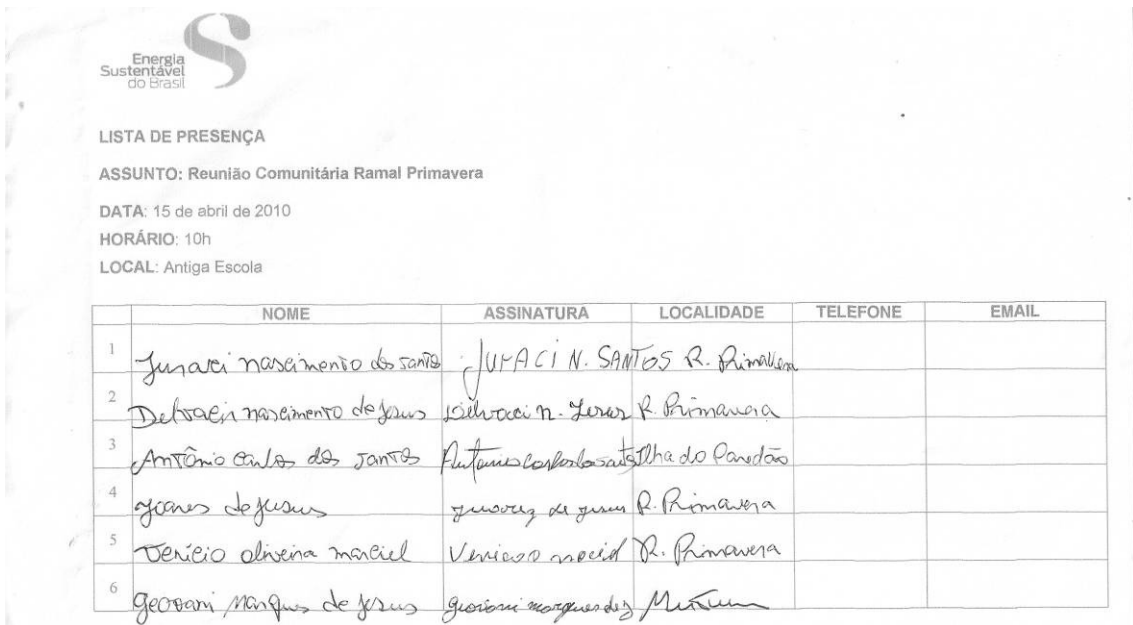 Energia
Sustentável
do Brasil
LISTA DE PRESENÇA
ASSUNTO: Reunião Comunitária Ramal Primavera
DATA: 15 de abril de 2010
HORÁRIO: 10h
LOCAL: Antiga Escola
NOME ASSINATURA LOCALIDADE TELEFONE EMAIL
1 Juraci nascimento dos santos JURACI N. SANTOS R. Primavera
2 nascimento de Jesus n. Jesus R. Primavera
3 Antônio Carlos dos santos Antonio Carlos Ilha do Paredão
4 de Jesus de Jesus R. Primavera
5 oliveira R. Primavera
6 Geovani Marques de Jesus